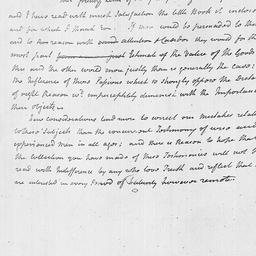 and I have read with much Satisfaction the little Book it inclosed
and for which I thank you. If Men would be persuaded to
and to hear reason with attention & Candor they would for the
most part form a just Estimate of the Value of the Goods
this and the other world more justly than is generally the case;
the Influence of those Passions which so strongly oppose the Dictates
of right Reason wd. imperceptibly diminish with the Importance
their objects.
Few considerations tend more to correct our mistakes relative
to these Subjects than the concurrent Testimony of wise and
experienced men in all ages; and there is Reason to hope that
the Collection you have made of these Testimonies will not be
read with Indifference by any who love Truth and reflect that
are interested in every Period of futurity however remote.